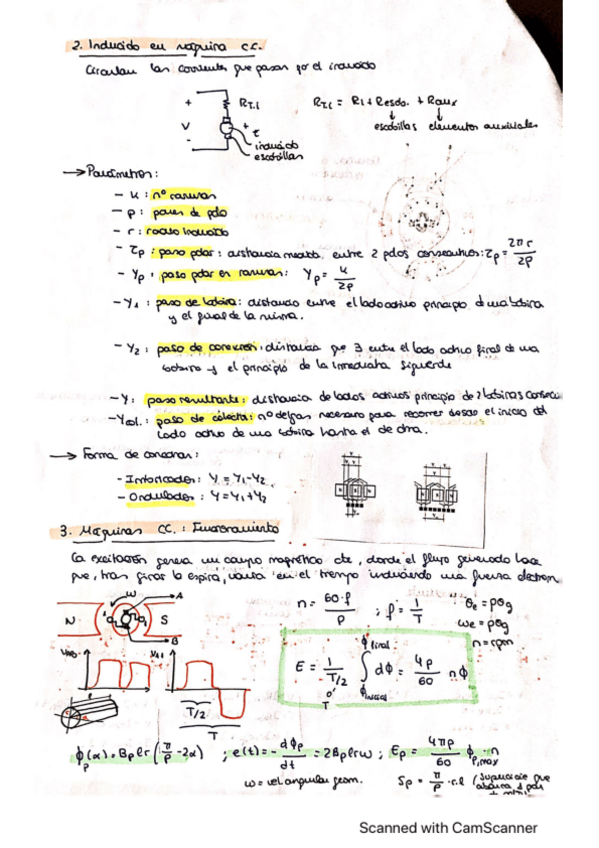 2. Inducido en máquina CC.
Circulan las corrientes que pasan por el inducido
+
V
-
R_T.i
+ τ
inducido
escobillas
R_T.i = Ri + Rescb. + Raux
escobillas elementos auxiliares
→ Parámetros:
- K : nº ranuras
- p : pares de polo
- r : radio inducido
- τp : paso polar : distancia medida entre 2 polos consecutivos: τp = 2πr / 2p
- Yp : paso polar en ranuras: Yp = K / 2p
- Y1 : paso de bobina: distancia entre el lado activo principio de una bobina
y el final de la misma.
- Y2 : paso de conexión: distancia que ∃ entre el lado activo final de una
bobina y el principio de la inmediata siguiente
- Y : paso resultante: distancia de lados activos principio de 2 bobinas consecu
- Ycol. : paso de colector: nº delgas necesario para recorrer desde el inicio del
lado activo de una bobina hasta el de otra.
→ Forma de conectar:
- Imbricados : Y = Y1 - Y2
- Ondulados : Y = Y1 + Y2
3. Máquinas CC. : Funcionamiento
La excitación genera un campo magnético cte, donde el flujo generado hace
que, tras girar la espira, varía en el tiempo induciendo una fuerza electrom
N
ω
A
S
B
n = 60·f / p ; f = 1 / T
θe = pθg
ωe = pθg
n = rpm
E = 1 / T/2 ∫ dΦ = 4p / 60 nΦ
Φfinal
Φinicial
T
T/2
T
Φp(α) = Bp l r (π/p - 2α) ; e(t) = - dΦp / dt = 2Bp l r ω ; Ep = 4πp / 60 Φp,max · n
ω = vel angular geom.
Sp = π/p · r·l (superficie que
abarca 1 par
Scanned with CamScanner